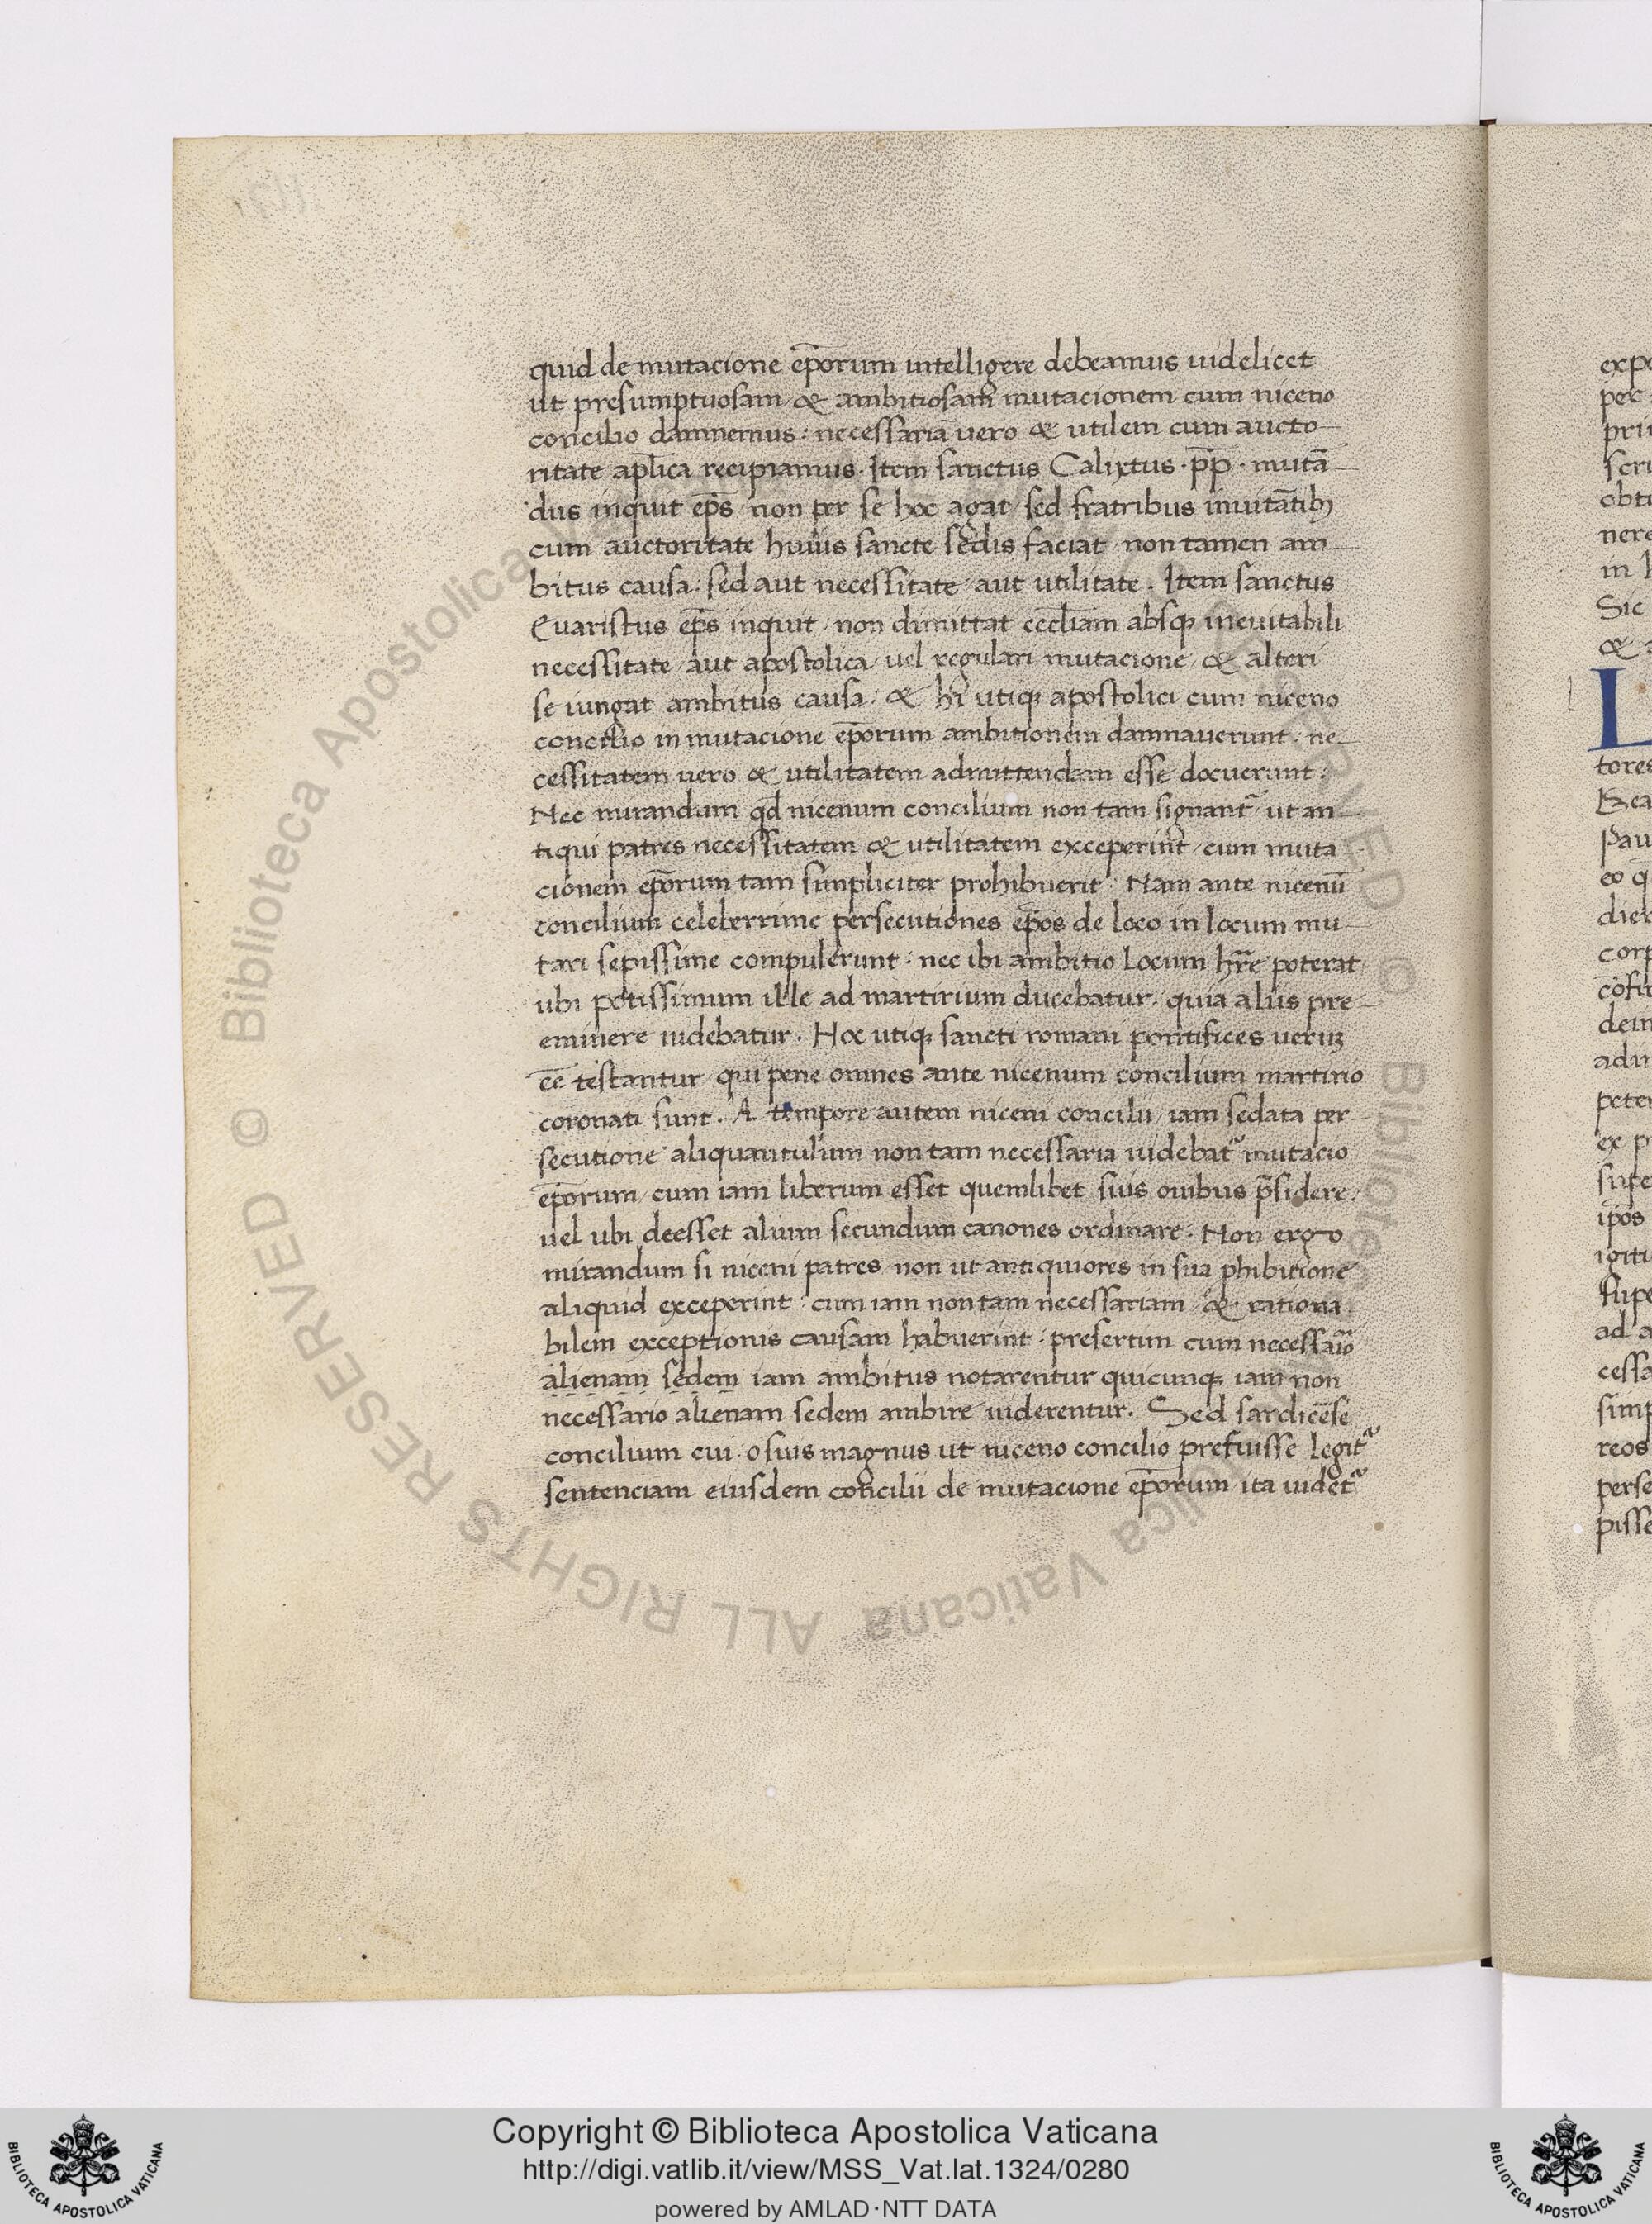 quid de mutacione ep̄orum intelligere debeamus uidelicet
ut presumptuosam & ambitiosam mutacionem cum niceno
concilio damnemus: necessariā uero & utilem cum aucto-
ritate apl̄ica recipiamus. Item sanctus Calixtus .pp̄. mutā-
dus inquit ep̄s non per se hoc agat sed fratribus inuitātibꝫ
cum auctoritate huius sancte sedis faciat non tamen am-
bitus causa. sed aut necessitate aut utilitate. Item sanctus
Euaristus ep̄s inquit non dimittat eccl̄iam absqꝫ ineuitabili
necessitate aut apostolica uel regulari mutacione & alteri
se iungat ambitus causa. & hi utiqꝫ apostolici cum niceno
concilio in mutacione ep̄orum ambitionem damnauerunt. ne-
cessitatem uero & utilitatem admittendam esse docuerunt:
Nec mirandum qd̄ nicenum concilium non tam signant᷑ ut an-
tiqui patres necessitatem & utilitatem exceperint cum muta-
cionem ep̄orum tam simpliciter prohibuerit. Nam ante nicenū
concilium celeberrime persecutiones ep̄os de loco in locum mu-
tari sepissime compulerunt. nec ibi ambitio locum hr̄e poterat
ubi potissimum ille ad martirium ducebatur. quia alius pre-
eminere uidebatur. Hoc utiqꝫ sancti romani pontifices ueruꝫ
eē testantur qui pene omnes ante nicenum concilium martirio
coronati sunt. A tempore autem niceni concilii iam sedata per-
secutione aliquantulum non tam necessaria uidebat᷑ mutacio
ep̄orum cum iam liberum esset quemlibet suis ouibus p̄sidere.
uel ubi deesset alium secundum canones ordinare. Non ergo
mirandum si niceni patres non ut antiquiores in sua ꝓhibitione
aliquid exceperint: cum iam non tam necessariam & rationa-
bilem exceptionis causam habuerint. presertim cum necessario
alienam sedem iam ambitus notarentur quicunqꝫ iam non
necessario alienam sedem ambire uiderentur. Sed sardicēse
concilium cui osius magnus ut niceno concilio prefuisse legit᷑
sentenciam eiusdem concilii de mutacione ep̄orum ita uidet᷑
L
Copyright © Biblioteca Apostolica Vaticana
http://digi.vatlib.it/view/MSS_Vat.lat.1324/0280
powered by AMLAD·NTT DATA
BIBLIOTECA APOSTOLICA VATICANA
BIBLIOTECA APOSTOLICA VATICANA